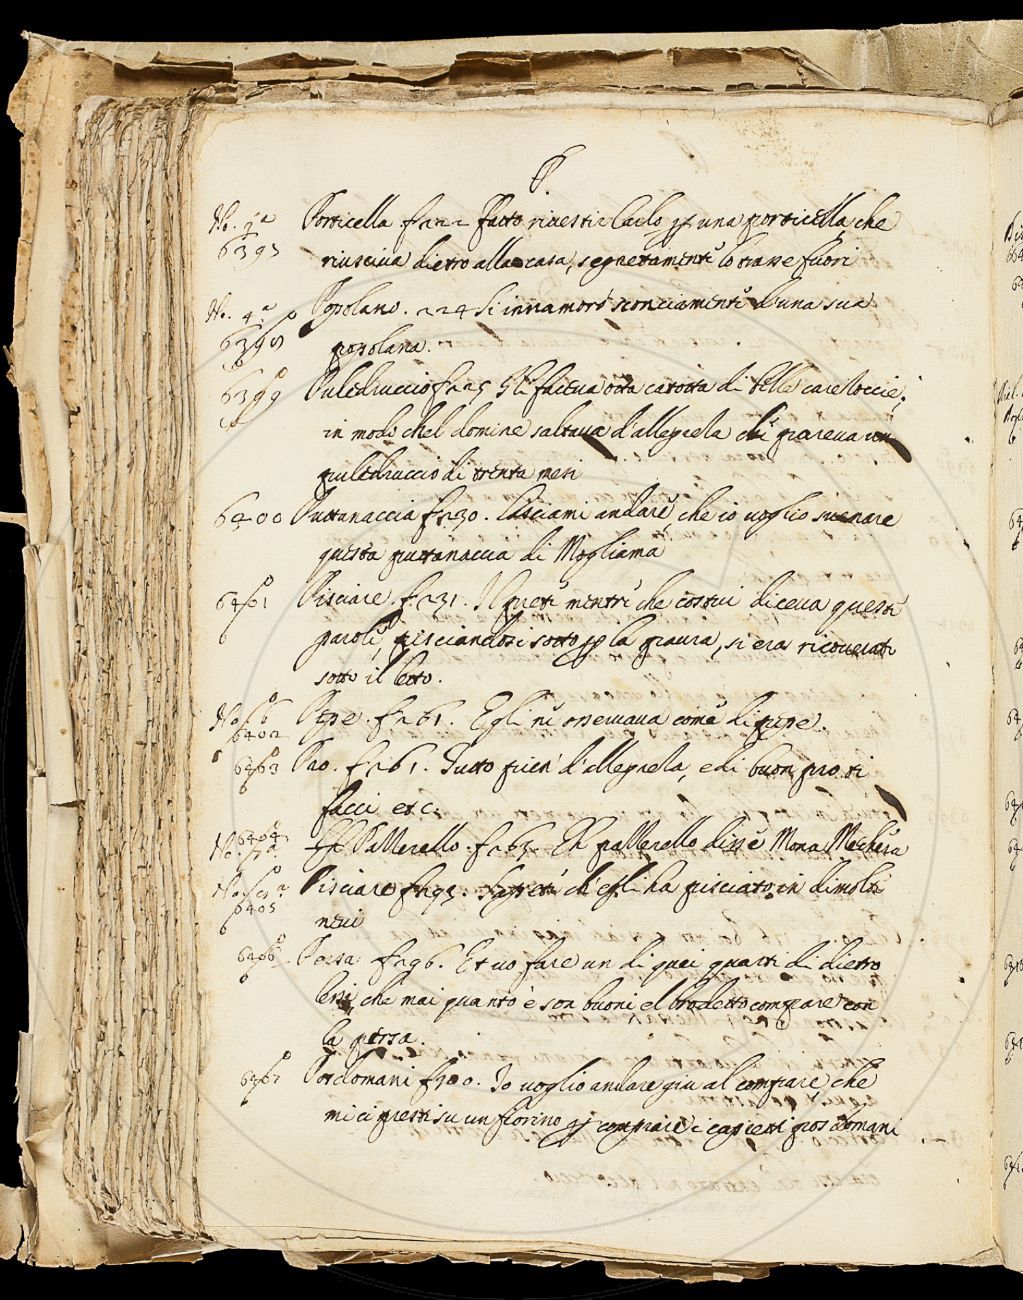 P
No. 3a Porticella fr222 Fatto rivestir Carlo p una porticella che
6397 riusciva dietro alla casa, segretamente lo trasse fuori
No. 4a Popolano. 224 Si innamorò sconciamente d'una sua
6398 popolana.
6399 Puledruccio fr225 Gli faceva otta catotta di belle carezoccie;
in modo chel domine saltava d'allegrezza che pareva un
puledruccio di trenta mesi
6400 Puttanaccia fr230. Lasciami andare, che io voglio svenare
questa puttanaccia di Mogliama
6401 Pisciare. fr231. Il prete mentre che costui diceva queste
parole, pisciandosi sotto p la paura, si era ricoverato
sotto il letto.
No. 6 Pepe. fr261. Egli ne osservava come di pepe.
6402
6403 Pro. fr261. Tutto pien d'allegrezza, e di buon pro ti
facci etc.
6404 Passerello. fr265. Eh passerello disse Mona Mechera
No. 7a
No. 9a Pisciare fr295. Sappiate ch'egli ha pisciato in dimolte
6405 nevi
6406 Persa fr296. Et vo fare un di quei quarti di dietro
lessi, che mai quanto e son buoni el brodetto comprare con
la persa.
6407 Posdomani fr300. Io voglio andare giu al compare, che
mi ci presti su un fiorino p comprare i capretti posdomani